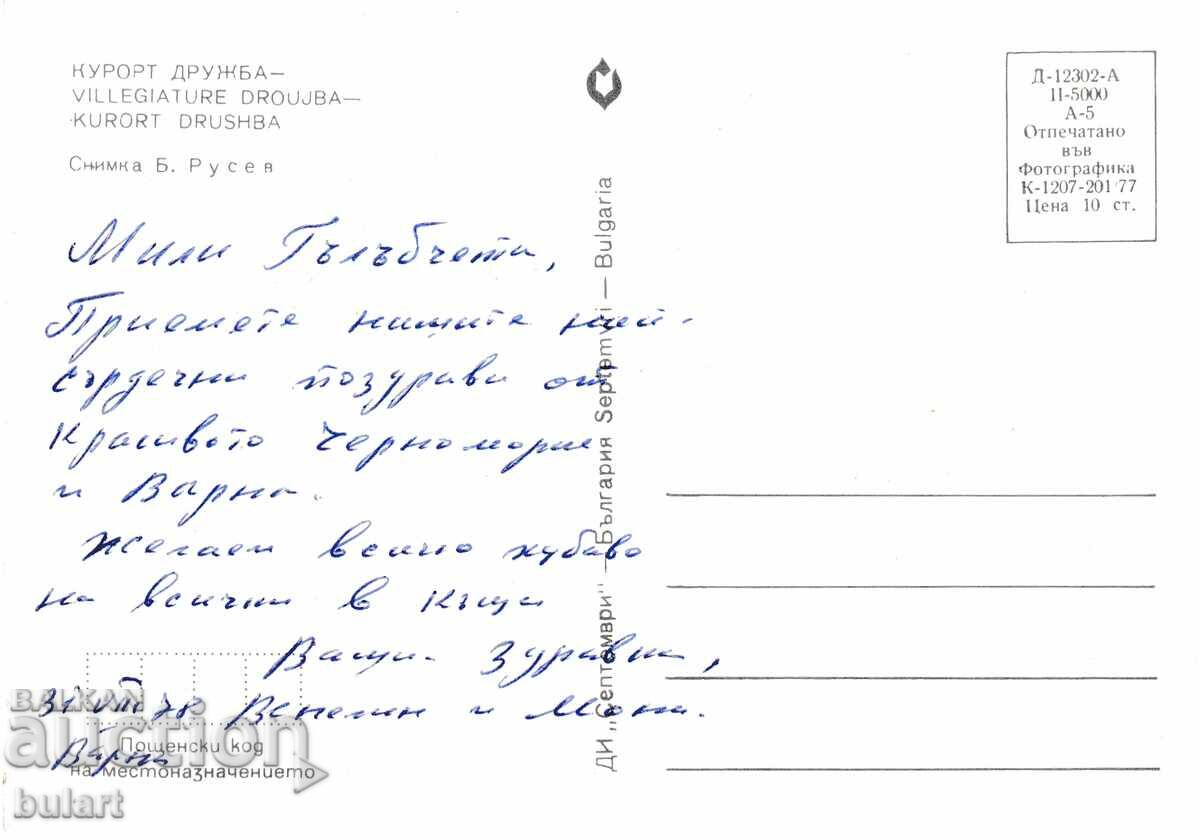 КУРОРТ ДРУЖБА—
VILLEGIATURE DROUJBA—
KURORT DRUSHBA
Снимка Б. Русев
Д-12302-А
11-5000
А-5
Отпечатано
във
Фотографика
К-1207-201'77
Цена 10 ст.
ДИ „Септември" — България Septemvri — Bulgaria
Мили Гълъбчета,
Приемете нашите най-
сърдечни поздрави от
красивото Черноморие
и Варна.
Желаем всичко хубаво
на всички в къщи
Ваши: Здравка,
Венелин и Мони.
Варна
Пощенски код
на местоназначението
BALKAN
auction
bulart